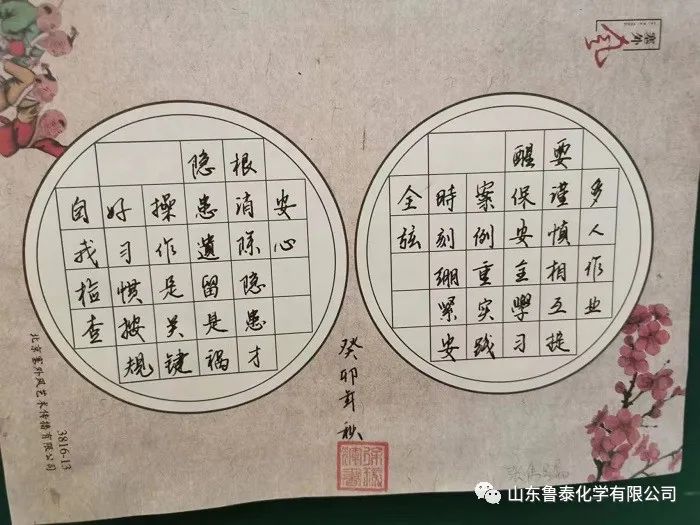 塞外风
多人作业
要谨慎相互提
醒保安全學习
案例重实践
時刻绷紧安
全弦
自我检查
好习惯按规
操作是关键
隐患遺留是祸
根消除隐患才
安心
癸卯年秋
北京塞外风艺术传播有限公司
3816-13
山东鲁泰化学有限公司